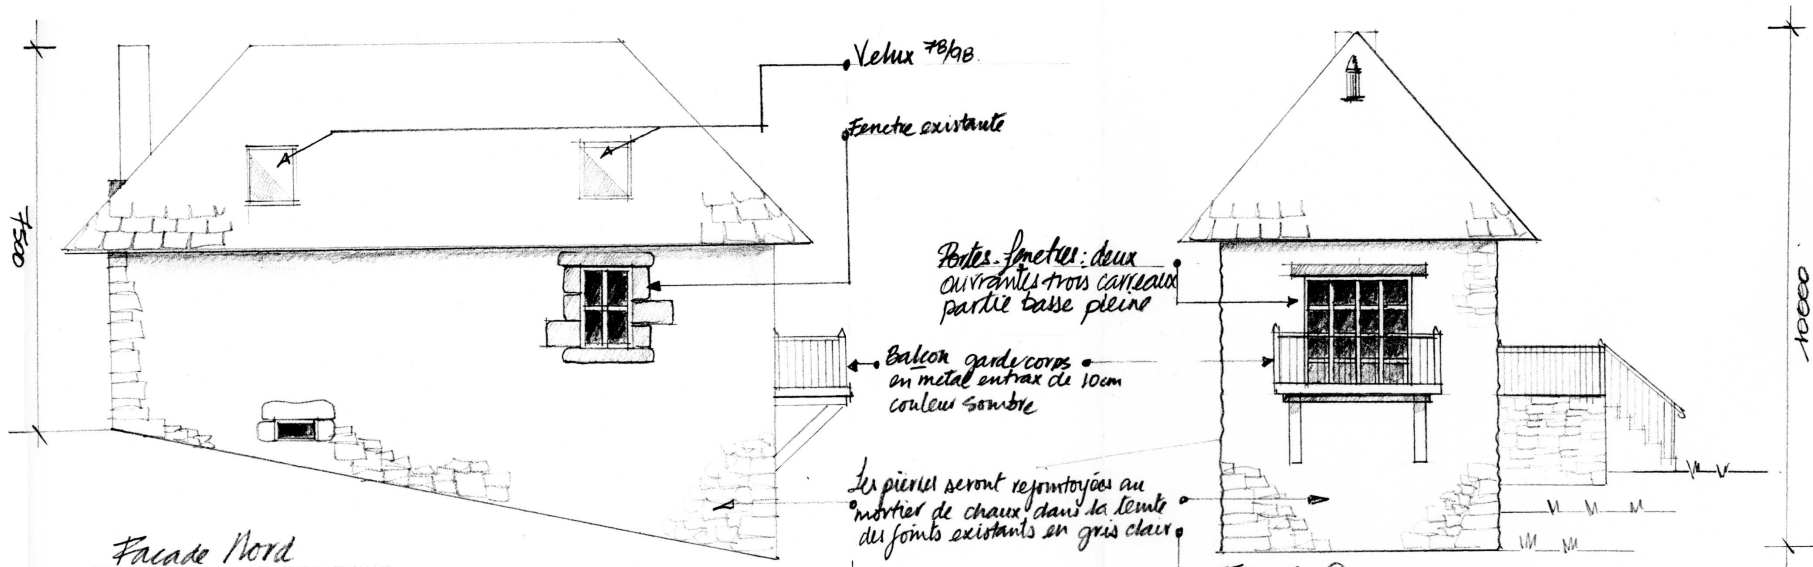 Velux 78/98
Fenetre existante
7500
Portes-fenetres: deux
ouvrantes trois carreaux
partie basse pleine
10000
Balcon garde corps
en metal entrax de 10cm
couleur sombre
Les pierres seront rejointoyées au
mortier de chaux dans la teinte
des joints existants en gris clair
Facade Nord